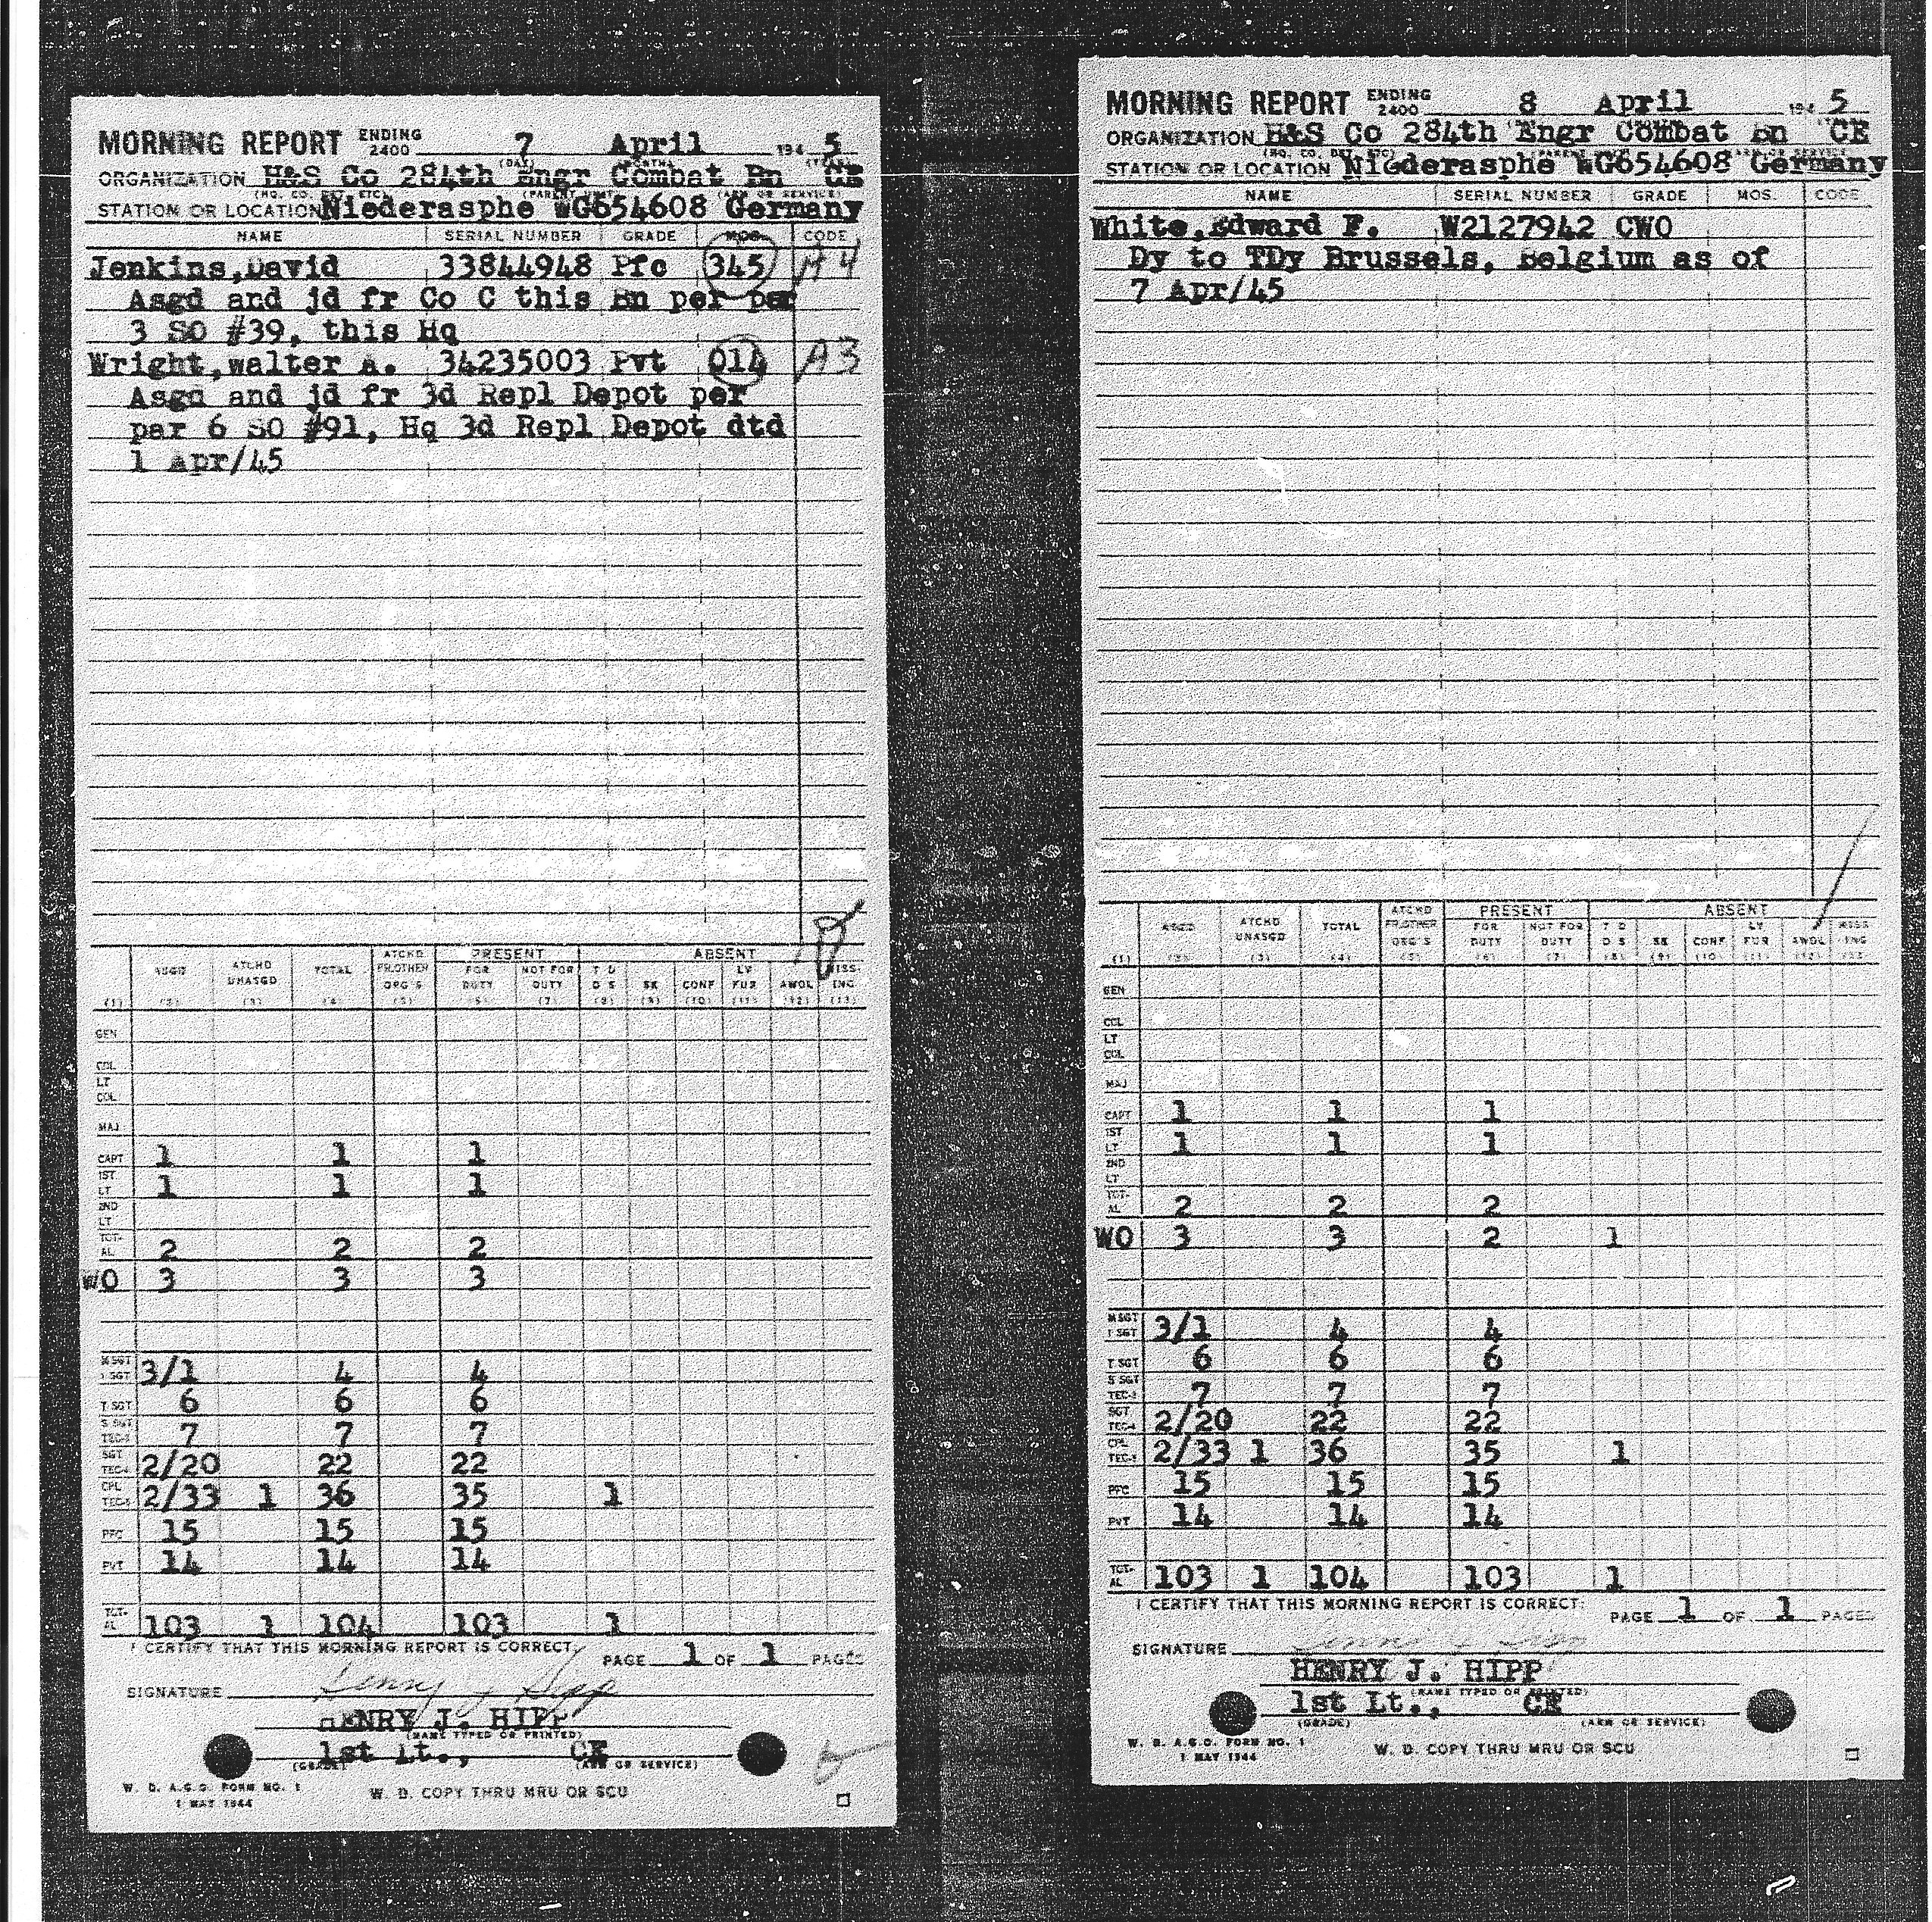 MORNING REPORT ENDING 2400 7 April 194 5
(DAY) (MONTH) (YEAR)
ORGANIZATION H&S Co 284th Engr Combat Bn CE
(HQ. CO. DET. ETC.) (PARENT UNIT) (ARM OR SERVICE)
STATION OR LOCATION Niederasphe WG654608 Germany
NAME SERIAL NUMBER GRADE MOS CODE
Jenkins,David 33844948 Pfc 345 A4
Asgd and jd fr Co C this Bn per par
3 SO #39, this Hq
Wright,walter A. 34235003 Pvt 014 A3
Asgd and jd fr 3d Repl Depot per
par 6 SO #91, Hq 3d Repl Depot dtd
1 Apr/45
PRESENT ABSENT
ASGD ATCHD UNASGD TOTAL ATCHD FR.OTHER ORG'S FOR DUTY NOT FOR DUTY T D D S SK CONF LV FUR AWOL MISS- ING
(1) (2) (3) (4) (5) (6) (7) (8) (9) (10) (11) (12) (13)
GEN
COL
LT COL
MAJ
CAPT 1 1 1
1ST LT 1 1 1
2ND LT
TOT- AL 2 2 2
WO 3 3 3
M SGT 1 SGT 3/1 4 4
T SGT 6 6 6
S SGT TEC-3 7 7 7
SGT TEC-4 2/20 22 22
CPL TEC-5 2/33 1 36 35 1
PFC 15 15 15
PVT 14 14 14
TOT- AL 103 1 104 103 1
I CERTIFY THAT THIS MORNING REPORT IS CORRECT.
PAGE 1 OF 1 PAGES
SIGNATURE Henry J Hipp
HENRY J. HIPP
(NAME TYPED OR PRINTED)
1st Lt., CE
(GRADE) (ARM OR SERVICE)
W. D. A.G.O. FORM NO. 1
1 MAY 1944
W. D. COPY THRU MRU OR SCU
MORNING REPORT ENDING 2400 8 April 194 5
ORGANIZATION H&S Co 284th Engr Combat Bn CE
(HQ. CO. DET. ETC.) (PARENT UNIT) (ARM OR SERVICE)
STATION OR LOCATION Niederasphe WG654608 Germany
NAME SERIAL NUMBER GRADE MOS CODE
White,Edward F. W2127942 CWO
Dy to TDy Brussels, Belgium as of
7 Apr/45
PRESENT ABSENT
ASGD ATCHD UNASGD TOTAL ATCHD FR.OTHER ORG'S FOR DUTY NOT FOR DUTY T D D S SK CONF LV FUR AWOL MISS- ING
(1) (2) (3) (4) (5) (6) (7) (8) (9) (10) (11) (12) (13)
GEN
COL
LT COL
MAJ
CAPT 1 1 1
1ST LT 1 1 1
2ND LT
TOT- AL 2 2 2
WO 3 3 2 1
M SGT 1 SGT 3/1 4 4
T SGT 6 6 6
S SGT TEC-3 7 7 7
SGT TEC-4 2/20 22 22
CPL TEC-5 2/33 1 36 35 1
PFC 15 15 15
PVT 14 14 14
TOT- AL 103 1 104 103 1
I CERTIFY THAT THIS MORNING REPORT IS CORRECT:
PAGE 1 OF 1 PAGES
SIGNATURE
HENRY J. HIPP
(NAME TYPED OR PRINTED)
1st Lt., CE
(GRADE) (ARM OR SERVICE)
W. D. A.G.O. FORM NO. 1
1 MAY 1944
W. D. COPY THRU MRU OR SCU